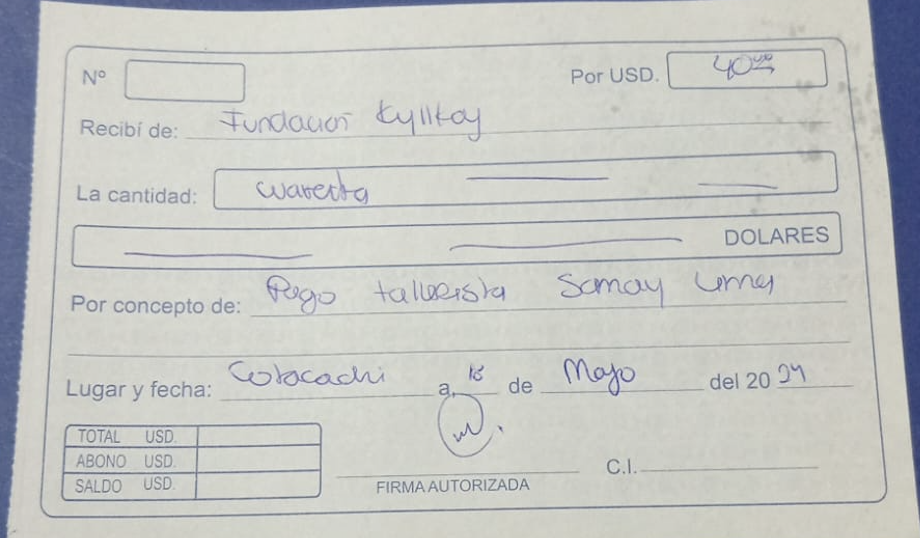 Nº Por USD. 40.00
Recibí de: Fundación Kyllkay
La cantidad: cuarenta
DOLARES
Por concepto de: Pago tallerista Samay uma
Lugar y fecha: Cotacachi a, 18 de Mayo del 2024
TOTAL USD.
ABONO USD.
SALDO USD.
FIRMA AUTORIZADA C.I.